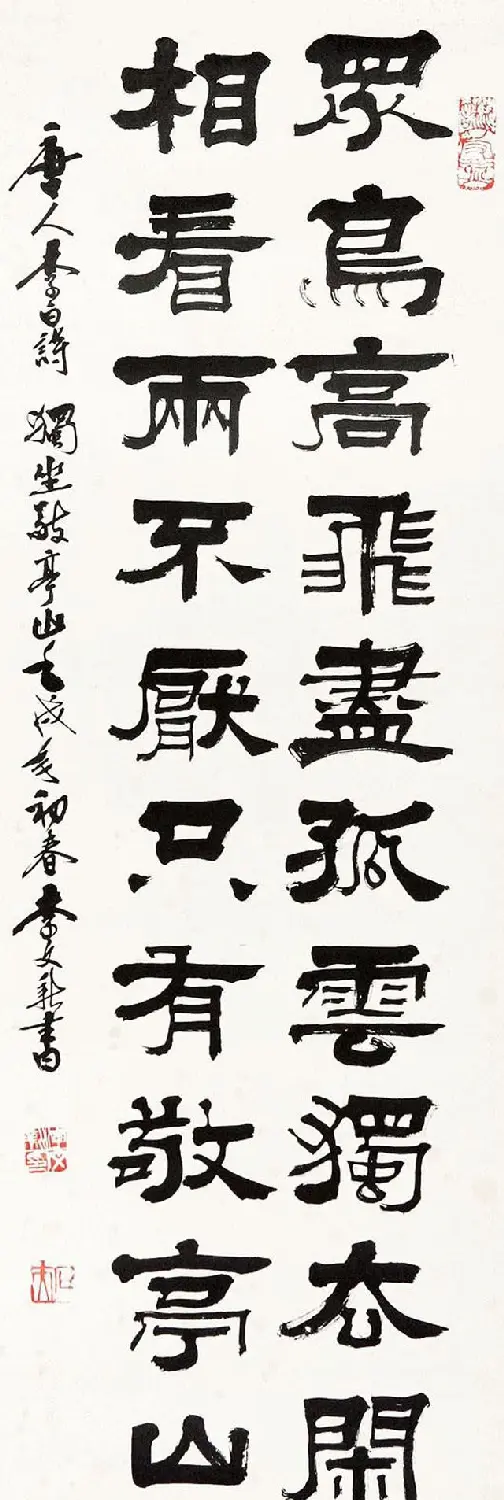 眾鳥高飛盡孤雲獨去閑
相看兩不厭只有敬亭山
唐人李白詩 獨坐敬亭山 壬戌年初春 文新書